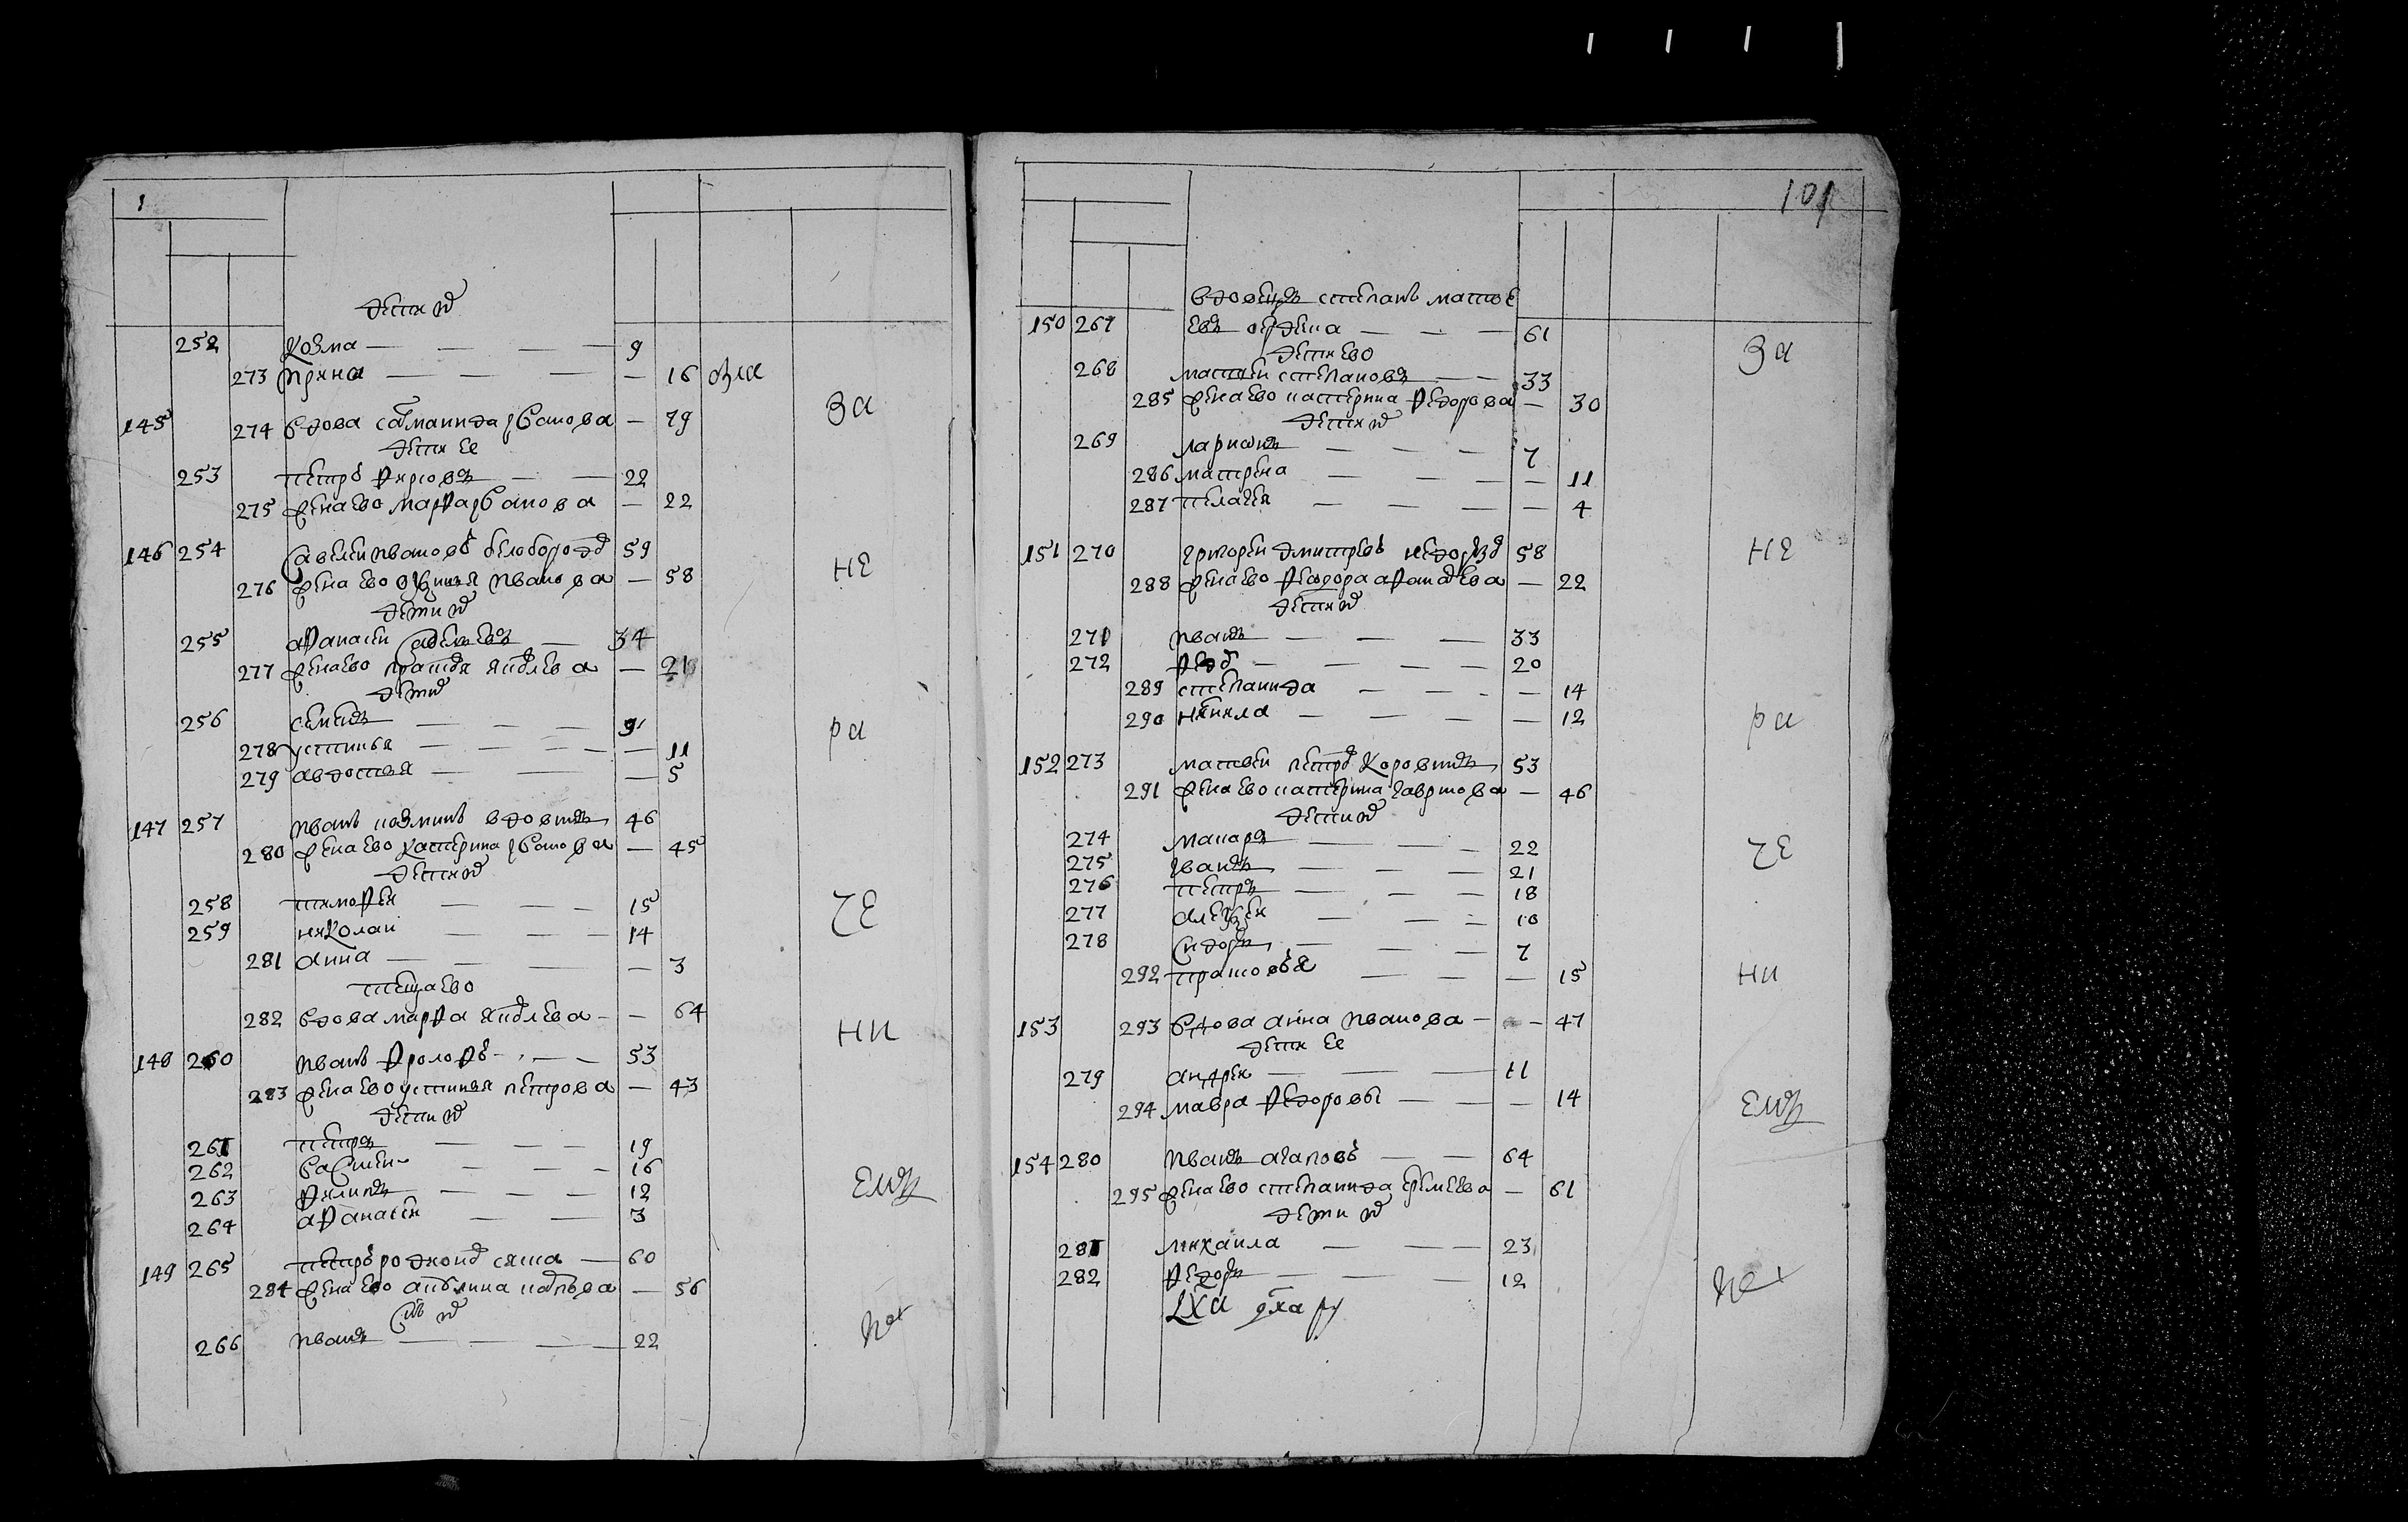 1
дети их
252 козма — — — — 9
273 ирина — — — — 16 была
за
145 274 вдова соломанида иванова — 79
дети ее
253 петръ фирсовъ — — 22
275 жена ево марфа иванова — 22
146 254 савелеи ивановъ белобород 59
не
276 жена ево иванова — 58
дети их
255 афанасеи савельевъ — 34
277 жена ево яковлева — 21
дети их
256 семенъ — — — 9
ра
278 устинья — — — — — 11
279 авдотья — — — 5
147 257 иванъ козминъ вдовинъ 46
280 жена ево катерина иванова — 45
дети их
258 тимофеи — — — 15
че
259 николаи — — — 14
281 анна — — — — 3
теща ево
282 вдова марфа яковлева — — 64
ни
148 260 иванъ фроловъ — — — 53
283 жена ево устинья петрова — 43
дети их
261 петръ — — — 19
262 василеи — — — 16
263 филипъ — — — 12
264 афанасеи — — 3
149 265 петръ родионов сята — 60
284 жена ево акулина — 56
сынъ их
266 иванъ — — — 22
101
вдовецъ степанъ матве
150 267 евъ — — — 61
дети ево
за
268 матвеи степановъ — — 33
285 жена ево катерина федорова — 30
дети их
269 лариωнъ — — — 7
286 матрена — — — — 11
287 пелагея — — — — 4
151 270 григореи дмитревъ 58
не
288 жена ево феωдора афанасева — 22
дети их
271 иванъ — — — 33
272 федоръ — — — — 20
289 степанида — — — — 14
290 ненила — — — — 12
ра
152 273 матвеи петров коровинъ 53
291 жена ево катерина гаврилова — 46
дети их
274 макаръ — — — 22
275 иванъ — — — 21
че
276 петръ — — — 18
277 алексеи — — 10
278 сидоръ — — — 7
292 прасковья — — — 15
ни
153 293 вдова анна иванова — — 47
дети ее
279 андреи — — — 11
294 мавра федоровы — — — 14
154 280 иванъ агаповъ — — 64
295 жена ево степанида еремеева — 61
дети их
281 михаила — — — 23
282 федоръ — — — 12